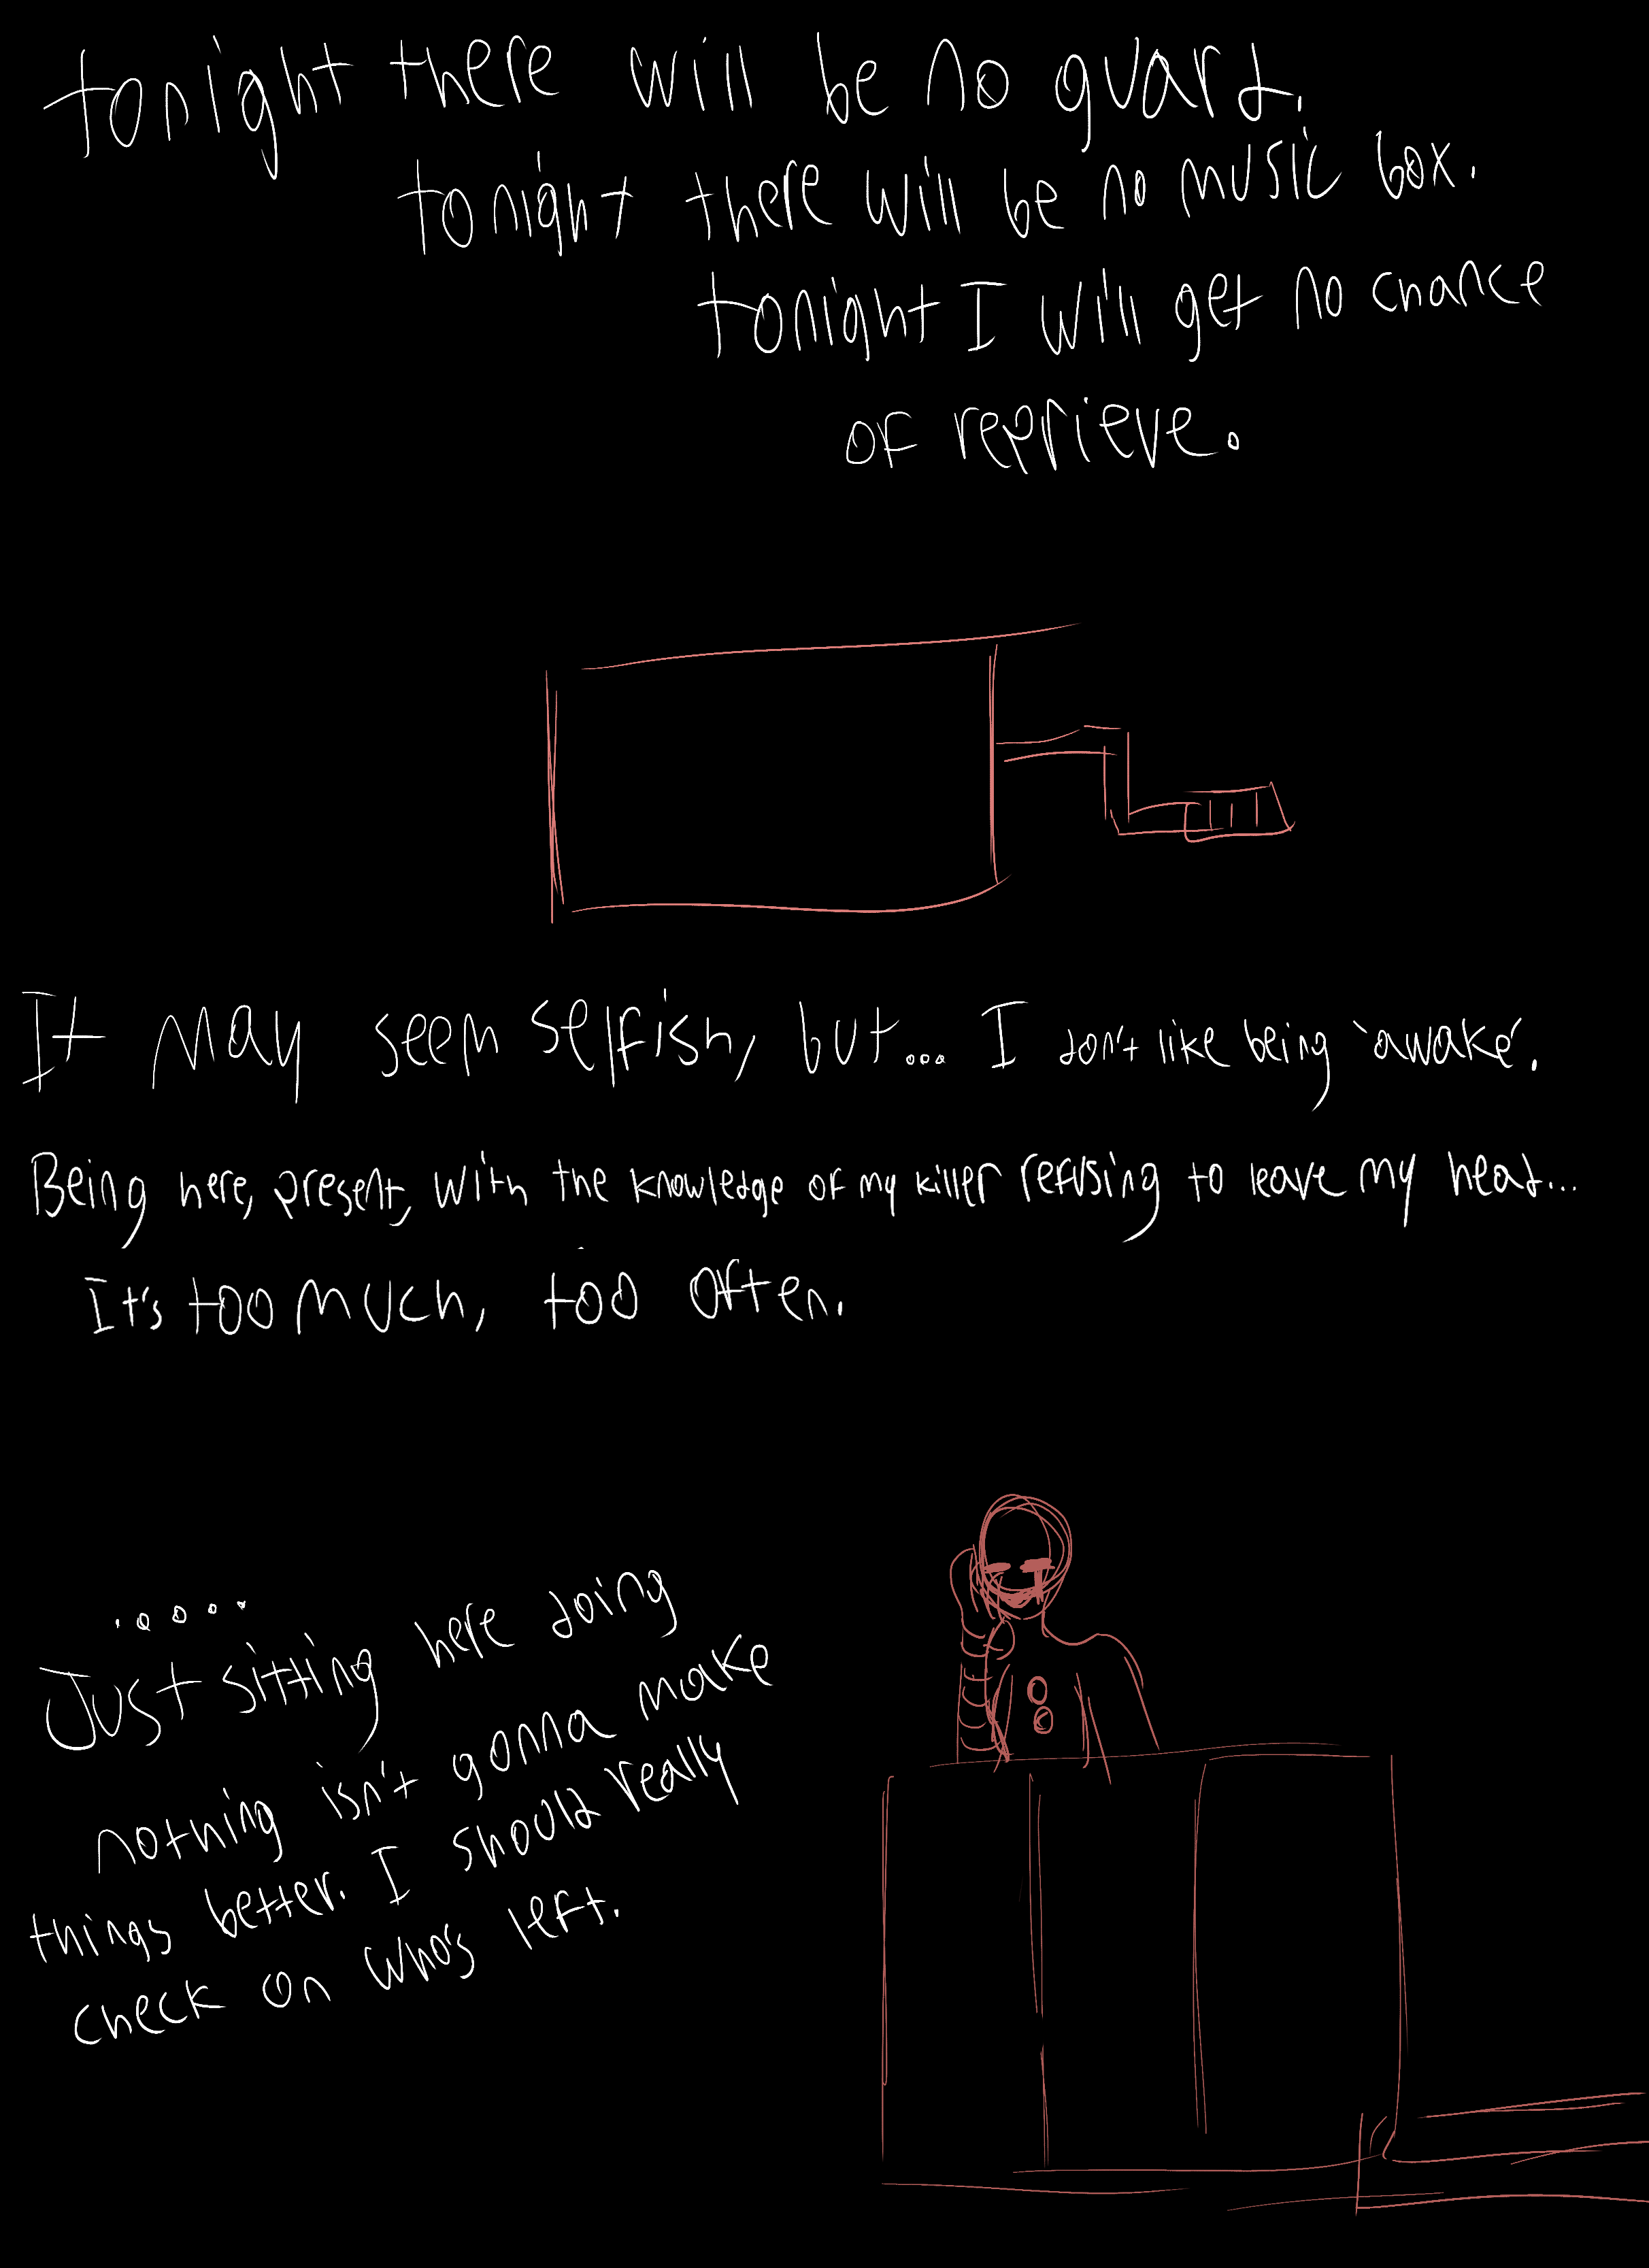 tonight there will be no guard.
tonight there will be no music box.
tonight I will get no chance
of reprieve.
It may seem selfish, but... I don't like being 'awake'.
Being here, present, with the knowledge of my killer refusing to leave my head...
It's too much, too often.
.....
Just sitting here doing
nothing isn't gonna make
things better. I should really
check on who's left.